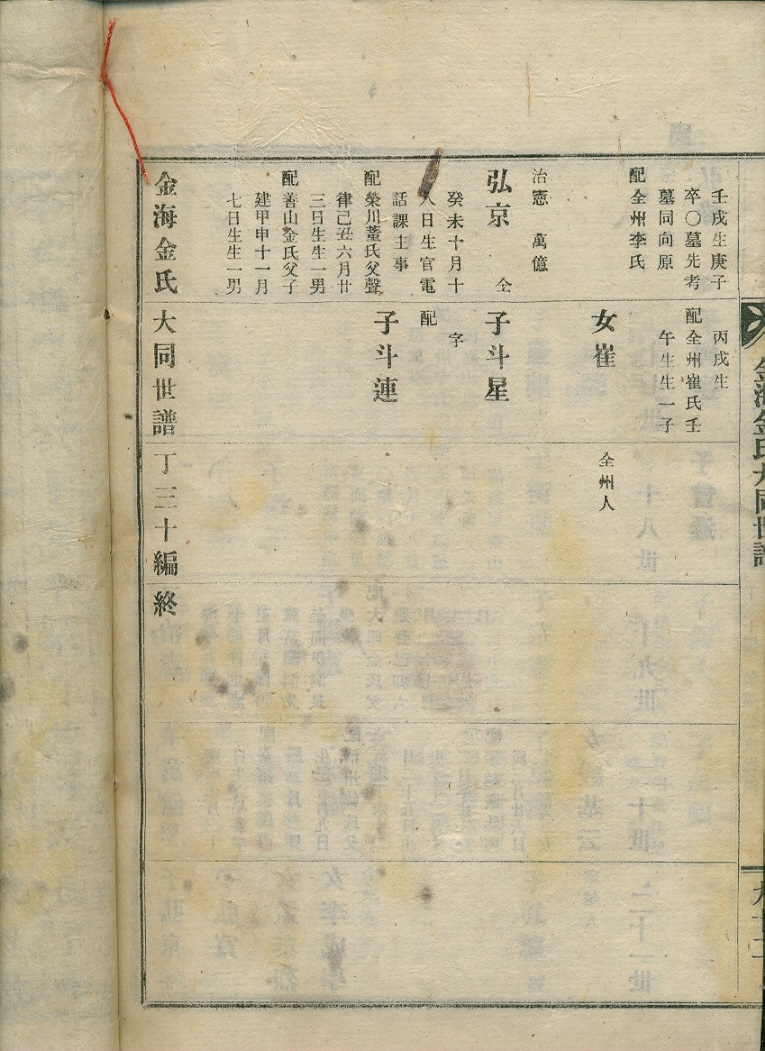 壬戌生庚子
卒○墓先考
墓同向原
配全州李氏
治憲 萬億
弘京 仝
癸未十月十
八日生官電
話課主事
配榮川董氏父聲
律己丑六月廿
三日生生一男
配善山金氏父子
建甲申十一月
七日生生一男
丙戌生
配全州崔氏壬
午生生一子
女崔
子斗星
字
配
子斗連
全州人
金海金氏大同世譜丁三十編終
金海金氏大同世譜